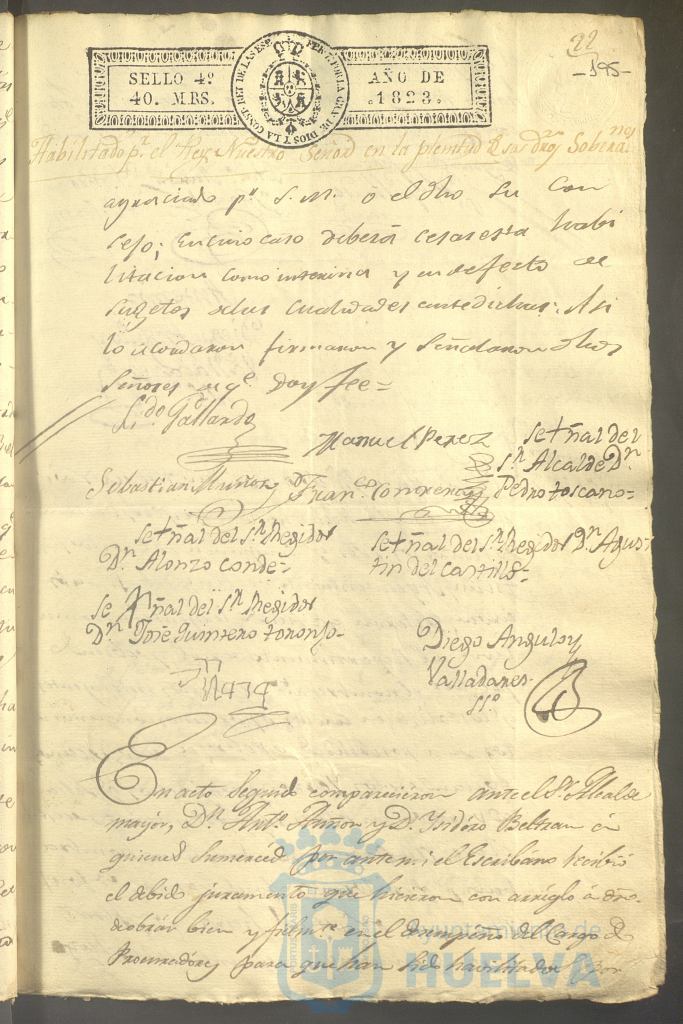 22
-195-
SELLO 4º
40. MRS.
AÑO DE
.1823.
FERN. 7. POR LA GRA. DE DIOS Y LA CONST. REY DE LAS ESP.
Habilitado pr. el Rey Nuestro Señor en la plenitud de sus dros. Soberanos
agraciado pr. S. M. o el dho Su Con
sejo; en cuio caso deberá cesar esta habi
litacion como interina y en defecto de
sugetos de las cualidades antedichas: Asi
lo acordaron firmaron y Señalaron dhos
Señores de qe. doy fee=
Ldo. Gallardo
Manuel Perez
Se+ñal del
Sr. Alcalde Dn.
Pedro toscano=
Sebastian Muñoz
Franco. Contreras
Se+ñal del Sr. Regidor
Dn. Alonzo Conde=
Se+ñal del Sr. Regidor Dn. Agus-
tin del Castillo=
Se+ñal del Sr. Regidor
Dn. Jose Quintero toronjo-
Diego Angulo y
Valladares
SSo.
En acto Seguido comparecieron ante el Sr. Alcalde
mayor, Dn. Anto. Muñoz y Dn. Ysidoro Beltran á
quienes Sumerced por ante mi el Escribano recibió
el debido juramento que hicieron con arreglo á dro.
de obrar bien y fielmte. en el desempeño del Cargo de
Procuradores para que han sido habilitados por
Ayuntamiento de
HUELVA